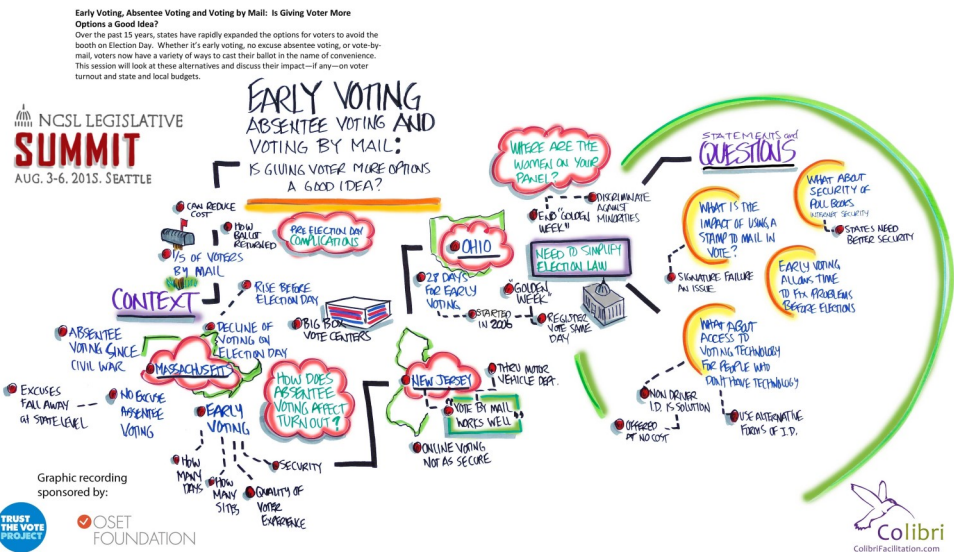 Early Voting, Absentee Voting and Voting by Mail: Is Giving Voter More
Options a Good Idea?
Over the past 15 years, states have rapidly expanded the options for voters to avoid the
booth on Election Day. Whether it's early voting, no excuse absentee voting, or vote-by-
mail, voters now have a variety of ways to cast their ballot in the name of convenience.
This session will look at these alternatives and discuss their impact—if any—on voter
turnout and state and local budgets.
NCSL LEGISLATIVE
SUMMIT
AUG. 3-6, 2015. SEATTLE
EARLY VOTING
ABSENTEE VOTING AND
VOTING BY MAIL:
IS GIVING VOTER MORE OPTIONS
A GOOD IDEA?
CAN REDUCE
COST
HOW
BALLOT
RETURNED
1/5 OF VOTERS
BY MAIL
PRE ELECTION DAY
COMPLICATIONS
CONTEXT
RISE BEFORE
ELECTION DAY
DECLINE OF
VOTING ON
ELECTION DAY
BIG BOX
VOTE CENTERS
ABSENTEE
VOTING SINCE
CIVIL WAR
MASSACHUSETTS
EXCUSES
FALL AWAY
at STATE LEVEL
NO EXCUSE
ABSENTEE
VOTING
EARLY
VOTING
HOW
MANY
DAYS
HOW
MANY
SITES
QUALITY OF
VOTER
EXPERIENCE
SECURITY
HOW DOES
ABSENTEE
VOTING AFFECT
TURN OUT?
OHIO
28 DAYS
FOR EARLY
VOTING
STARTED
IN 2006
"GOLDEN
WEEK"
REGISTER
VOTE SAME
DAY
WHERE ARE THE
WOMEN ON YOUR
PANEL?
END "GOLDEN
WEEK"
DISCRIMINATE
AGAINST
MINORITIES
NEED TO SIMPLIFY
ELECTION LAW
NEW JERSEY
THRU MOTOR
VEHICLE DEPT.
"VOTE BY MAIL
WORKS WELL"
ONLINE VOTING
NOT AS SECURE
STATEMENTS and
QUESTIONS
WHAT IS THE
IMPACT OF USING A
STAMP TO MAIL IN
VOTE?
SIGNATURE FAILURE
AN ISSUE
WHAT ABOUT
SECURITY OF
POLL BOOKS
INTERNET SECURITY
STATES NEED
BETTER SECURITY
EARLY VOTING
ALLOWS TIME
TO FIX PROBLEMS
BEFORE ELECTIONS
WHAT ABOUT
ACCESS TO
VOTING TECHNOLOGY
FOR PEOPLE WHO
DON'T HAVE TECHNOLOGY
NON DRIVER
I.D. IS SOLUTION
OFFERED
AT NO COST
USE ALTERNATIVE
FORMS OF I.D.
Graphic recording
sponsored by:
TRUST
THE VOTE
PROJECT
OSET
FOUNDATION
Colibri
ColibriFacilitation.com